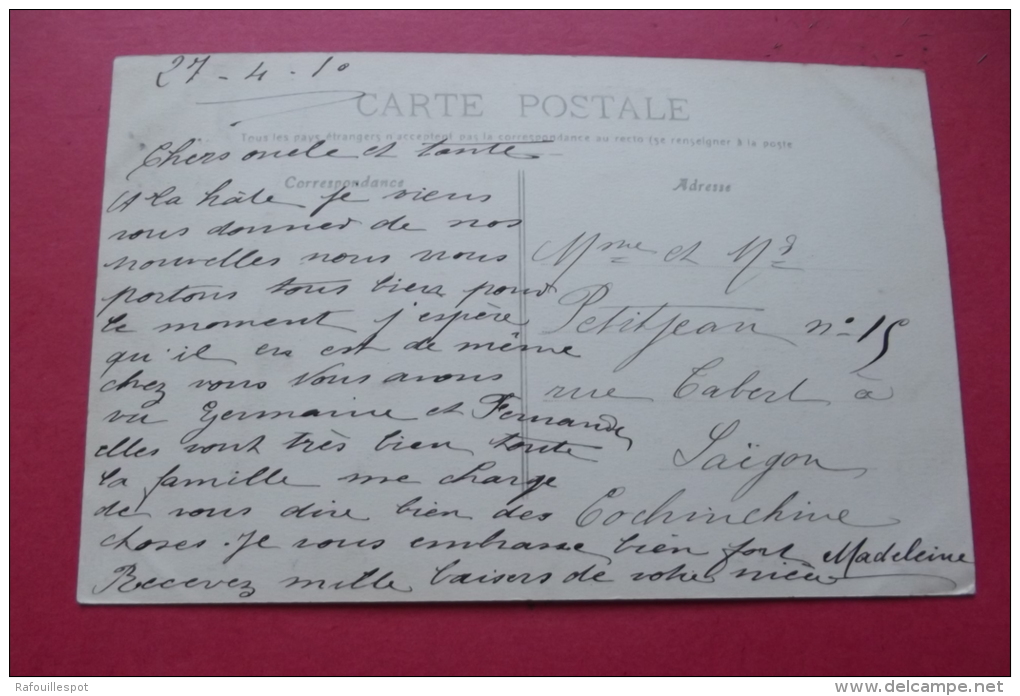 27 - 4 - 10
CARTE POSTALE
Tous les pays étrangers n'acceptent pas la correspondance au recto (se renseigner à la poste
Chers oncle et tante
Correspondance
A la hâte je viens
vous donner de nos
nouvelles nous nous
portons tous bien pour
le moment j'espère
qu'il en est de même
chez vous Nous avons
vu Germaine et Fernande
elles vont très bien toute
la famille me charge
de vous dire bien des
choses. Je vous embrasse bien fort
Recevez mille baisers de votre nièce
Madeleine
Adresse
Mme et Mr
Petitjean no 15
rue Tabert à
Saïgon
Cochinchine
Rafouillespot
www.delcampe.net